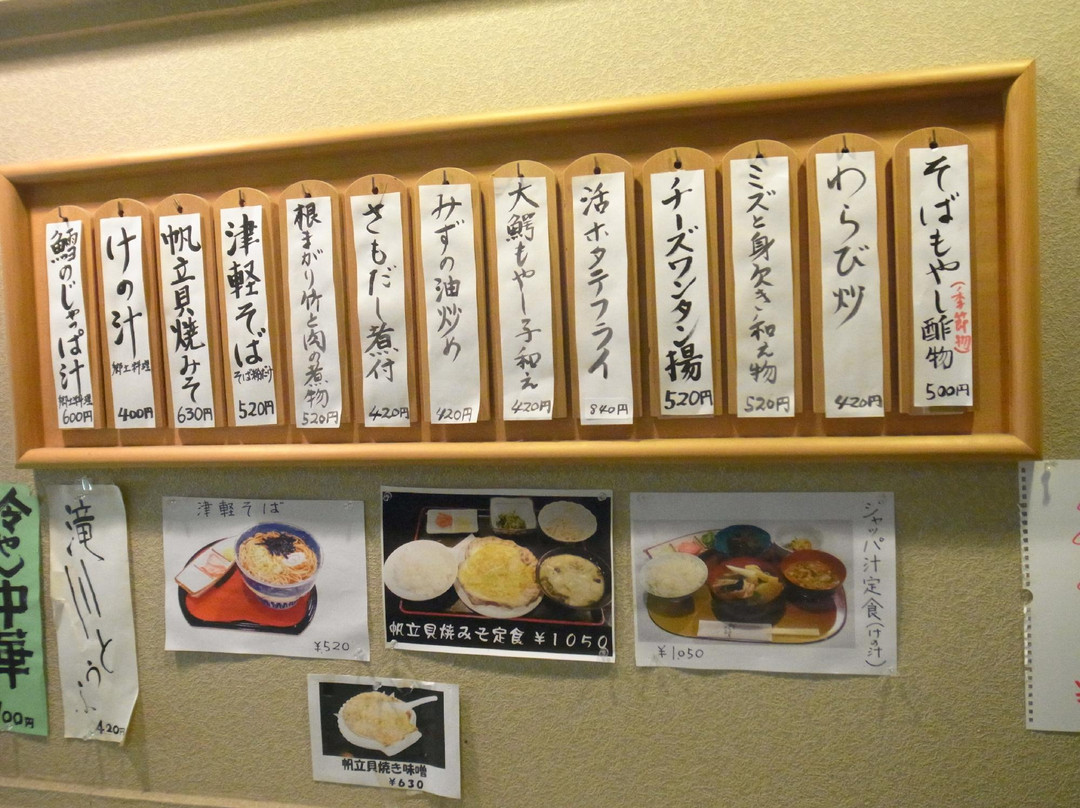 そばもやし酢物
(季節物)
500円
わらび炒
420円
ミズと身欠き和え物
520円
チーズワンタン揚
520円
活ホタテフライ
840円
大鰐もやし子和え
420円
みずの油炒め
420円
さもだし煮付
420円
根まがり竹と肉の煮物
520円
津軽そば
そば粉だけ
520円
帆立貝焼みそ
630円
けの汁
郷土料理
400円
鱈のじゃっぱ汁
郷土料理
600円
冷やし中華
滝川とうふ
420円
津軽そば
¥520
帆立貝焼みそ定食 ¥1050
ジャッパ汁定食(けの汁)
¥1050
帆立貝焼き味噌
¥630